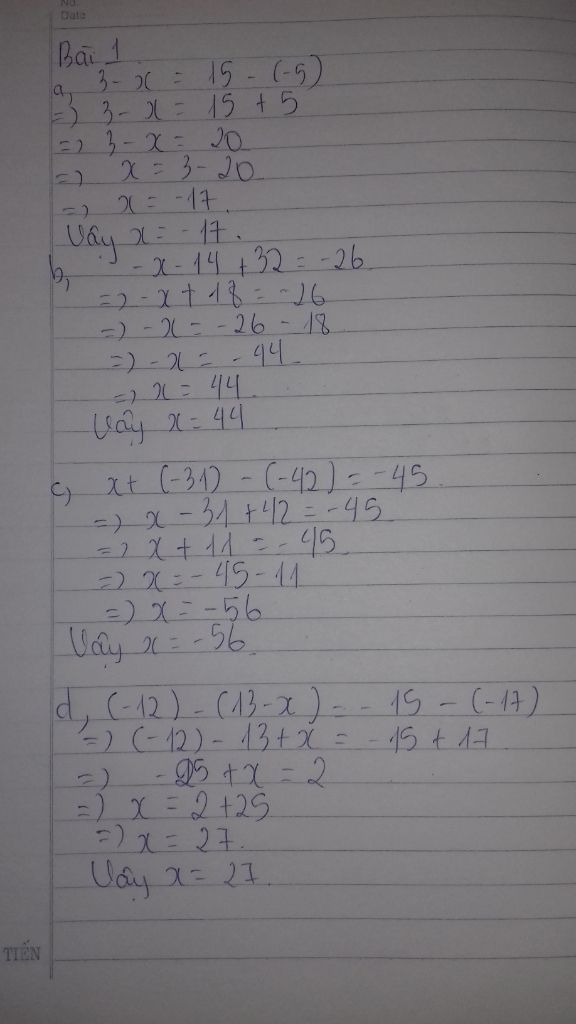 No.
Date
Bài 1
a, 3 - x = 15 - (-5)
=) 3 - x = 15 + 5
=) 3 - x = 20
=) x = 3 - 20
=) x = -17.
Vậy x = -17.
b, -x - 14 + 32 = -26
=) -x + 18 = -26
=) -x = -26 - 18
=) -x = -44
=) x = 44
Vậy x = 44
c, x + (-31) - (-42) = -45
=) x - 31 + 42 = -45
=) x + 11 = -45
=) x = -45 - 11
=) x = -56
Vậy x = -56
d, (-12) - (13 - x) = -15 - (-17)
=) (-12) - 13 + x = -15 + 17
=) -25 + x = 2
=) x = 2 + 25
=) x = 27.
Vậy x = 27.
TIẾN